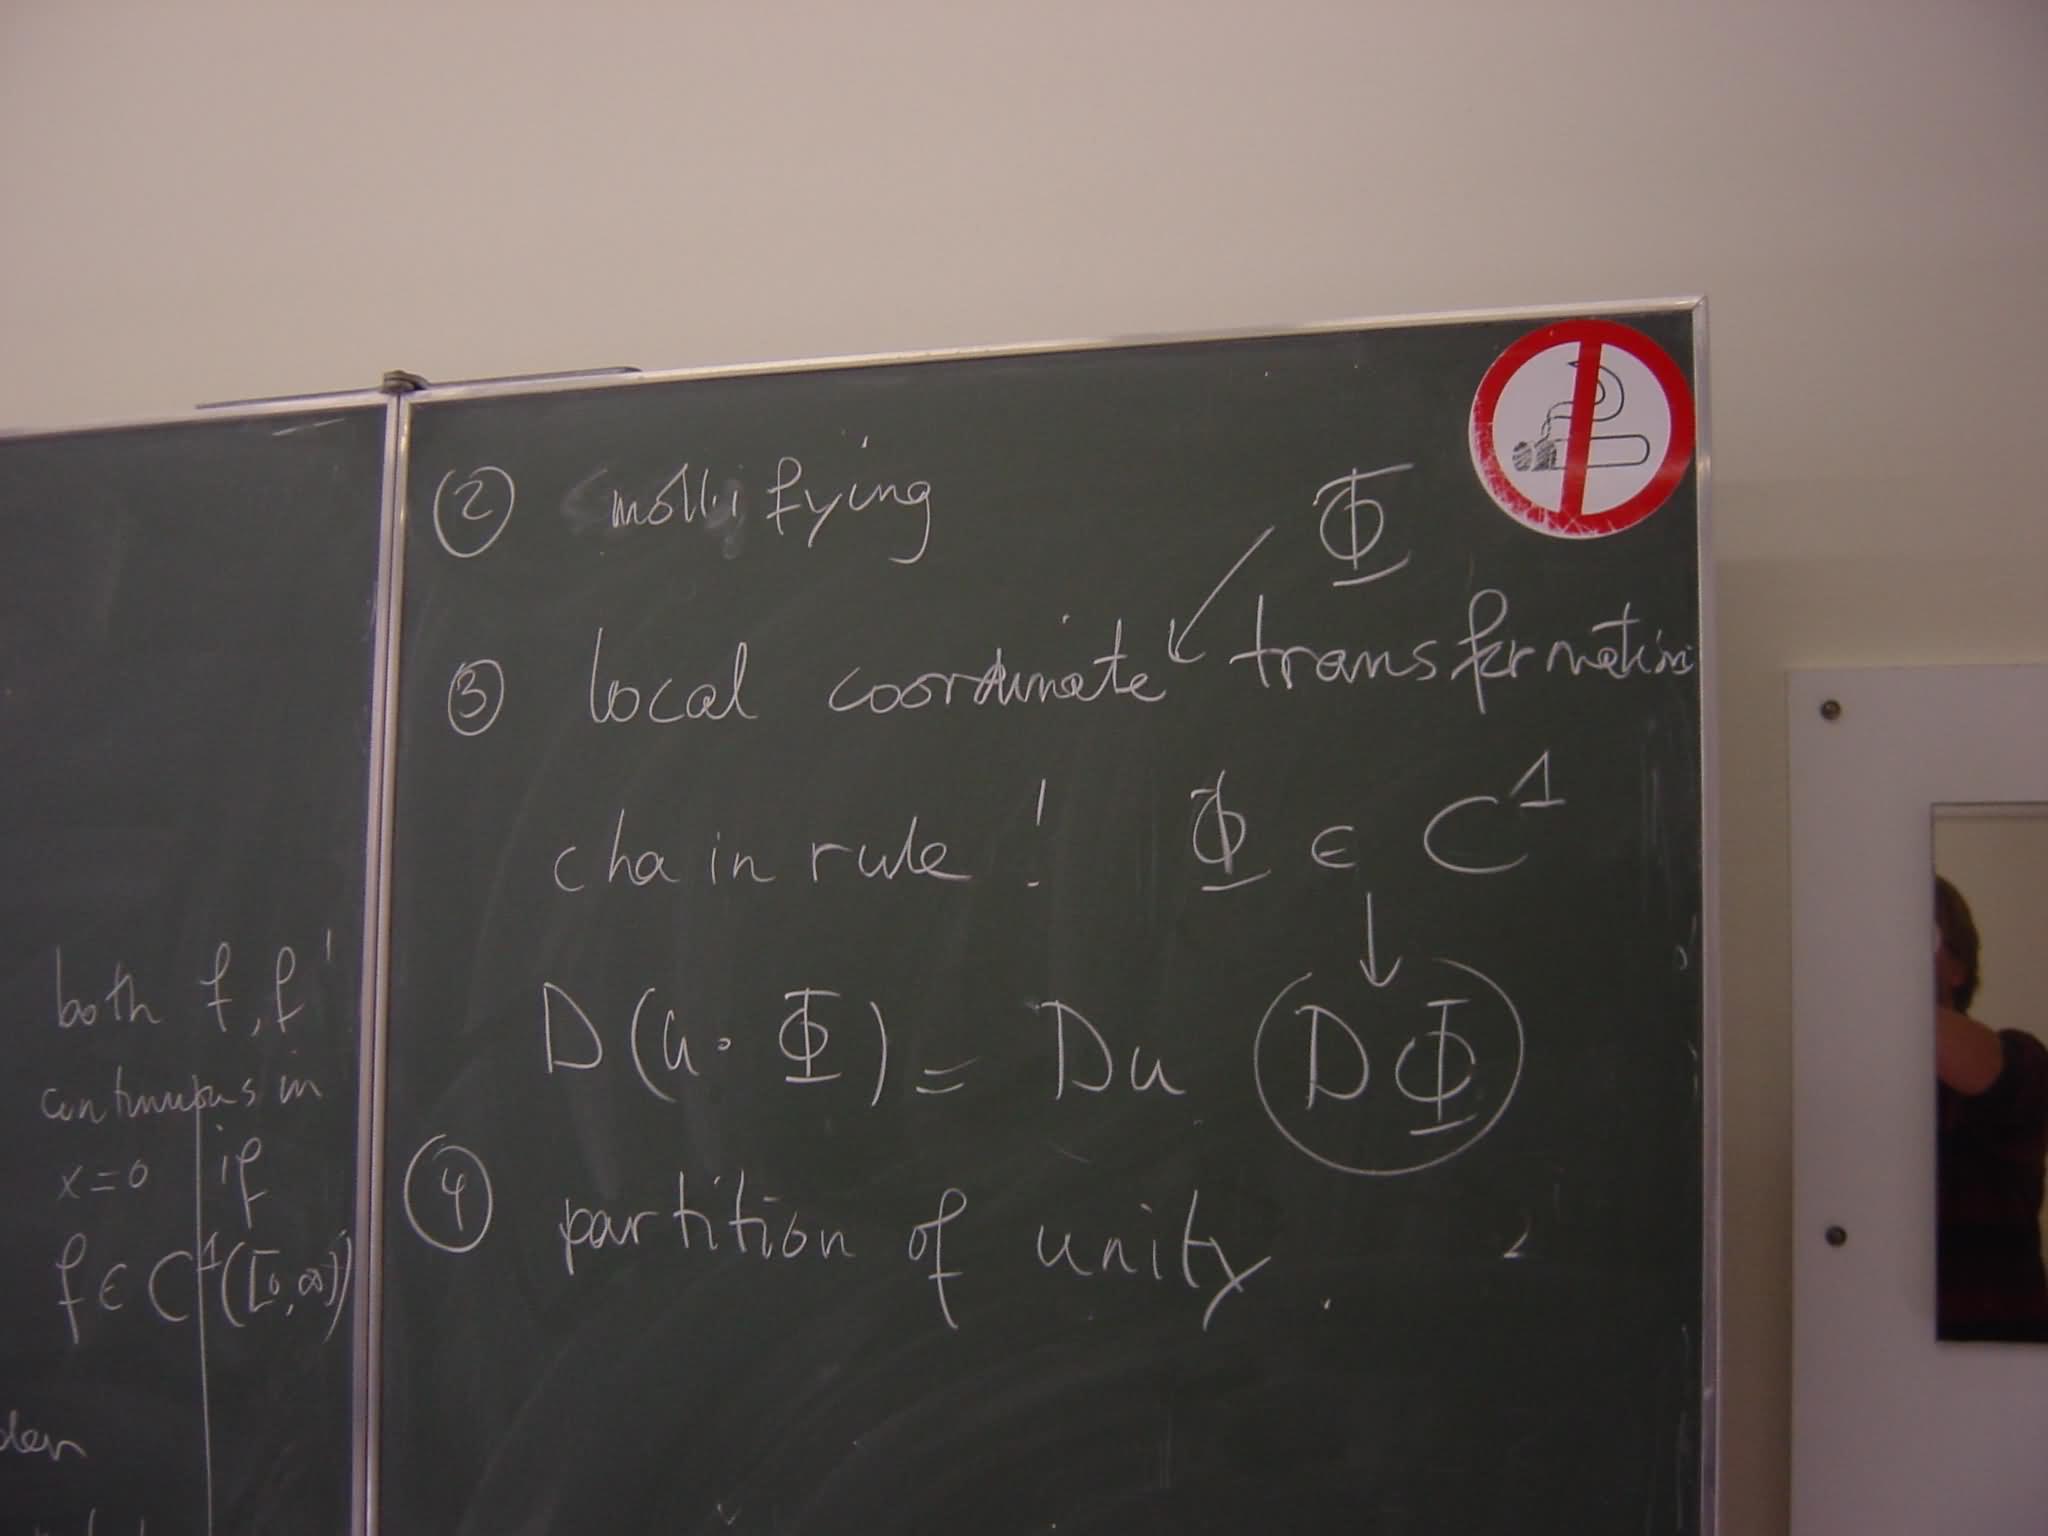 both f, f'
continuous in
x=0 if
f ∈ C¹([0,∞))
② mollifying
Φ
③ local coordinate transformation
chain rule! Φ ∈ C¹
D(u∘Φ) = Du DΦ
④ partition of unity.